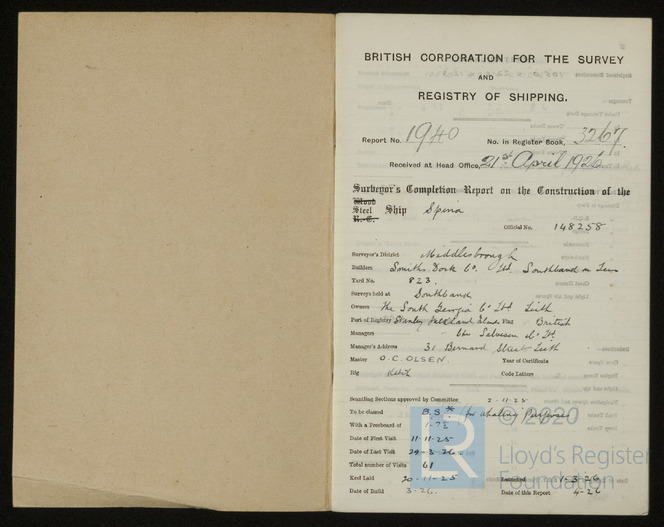 BRITISH CORPORATION FOR THE SURVEY
AND
REGISTRY OF SHIPPING.
Report No. 1940 No. in Register Book, 3267
Received at Head Office, 21st April 1926
Surveyor's Completion Report on the Construction of the
Wood
Steel Ship Spina
R.-C.
Official No. 148258
Surveyor's District Middlesbrough
Builders Smiths Dock Co. Ltd. Southbank on Tees
Yard No. 823.
Surveys held at Southbank
Owners The South Georgia Co Ltd. Leith
Port of Registry Stanley Falkland Islands Flag British
Managers Chr. Salvesen & Co
Manager's Address 31 Bernard Street Leith
Master O.C. OLSEN. Year of Certificate
Rig Ketch Code Letters
Scantling Sections approved by Committee 2-11-25
To be classed B.S.* for whaling Purposes
With a Freeboard of
Date of First Visit 11-11-25
Date of Last Visit 29-3-26
Total number of Visits 61
Keel Laid 20-11-25 Launched 1-3-26
Date of Build 3-26. Date of this Report 4-26
© 2020
LR
Lloyd's Register
Foundation